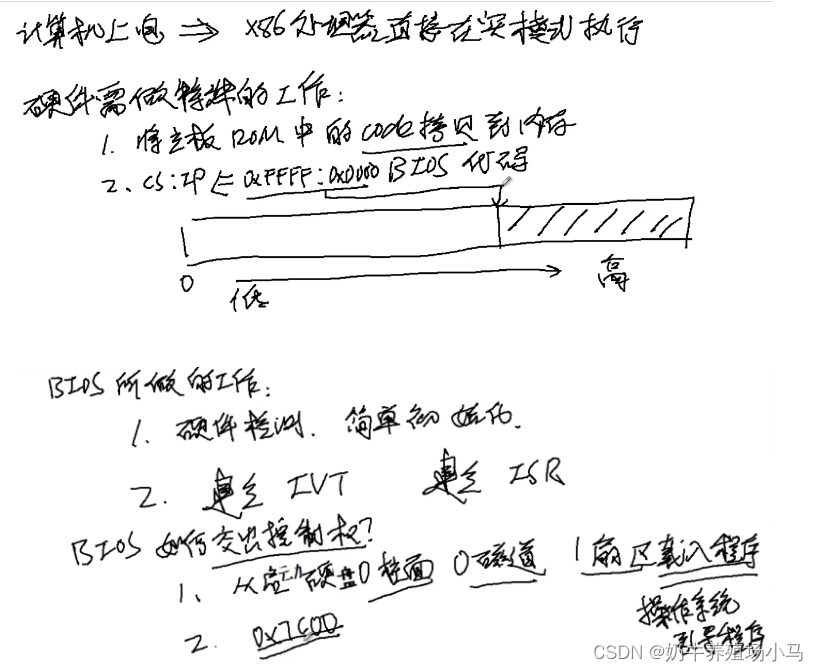 计算机上电 ⇒ x86处理器直接在实模式执行
硬件需做特殊的工作:
1. 将主板ROM中的code拷贝到内存
2. CS:IP ⇐ 0xFFFF:0x0000 BIOS 代码
0
低
高
BIOS 所做的工作:
1. 硬件检测. 简单初始化.
2. 建立 IVT 建立 ISR
BIOS 如何交出控制权?
1、从 硬盘0柱面 0磁道 1扇区载入程序
操作系统
引导程序
2. 0x7C00
CSDN @奶牛养殖场小马